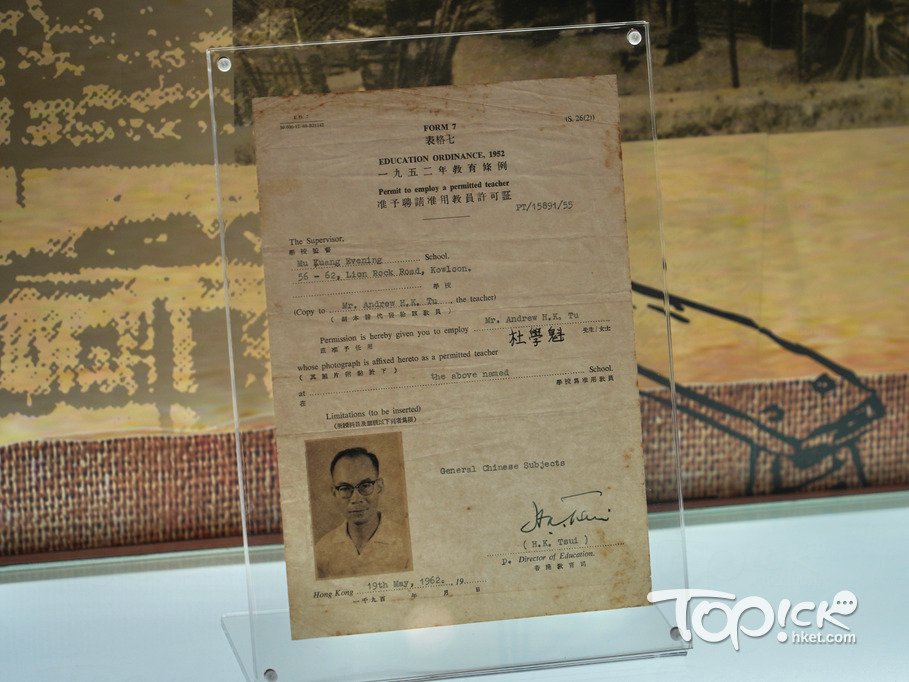 FORM 7
(S. 26(2))
表格七
EDUCATION ORDINANCE, 1952
一九五二年教育條例
Permit to employ a permitted teacher
准予聘請准用教員許可証
PT/15891/55
The Supervisor,
學校監督
Mu Kuang Evening School.
56 - 62, Lion Rock Road, Kowloon.
學校
(Copy to Mr. Andrew H.K. Tu, the teacher)
Permission is hereby given you to employ Mr. Andrew H.K. Tu
茲准予任用 杜學魁 先生/女士
whose photograph is affixed hereto as a permitted teacher
at the above named School.
在 學校為准用教員
Limitations (to be inserted)
General Chinese Subjects
(H.K. Tsui)
D. Director of Education.
香港教育司
Hong Kong 19th May, 1962. 19
一千九百 年 月 日
TOPICK
hket.com